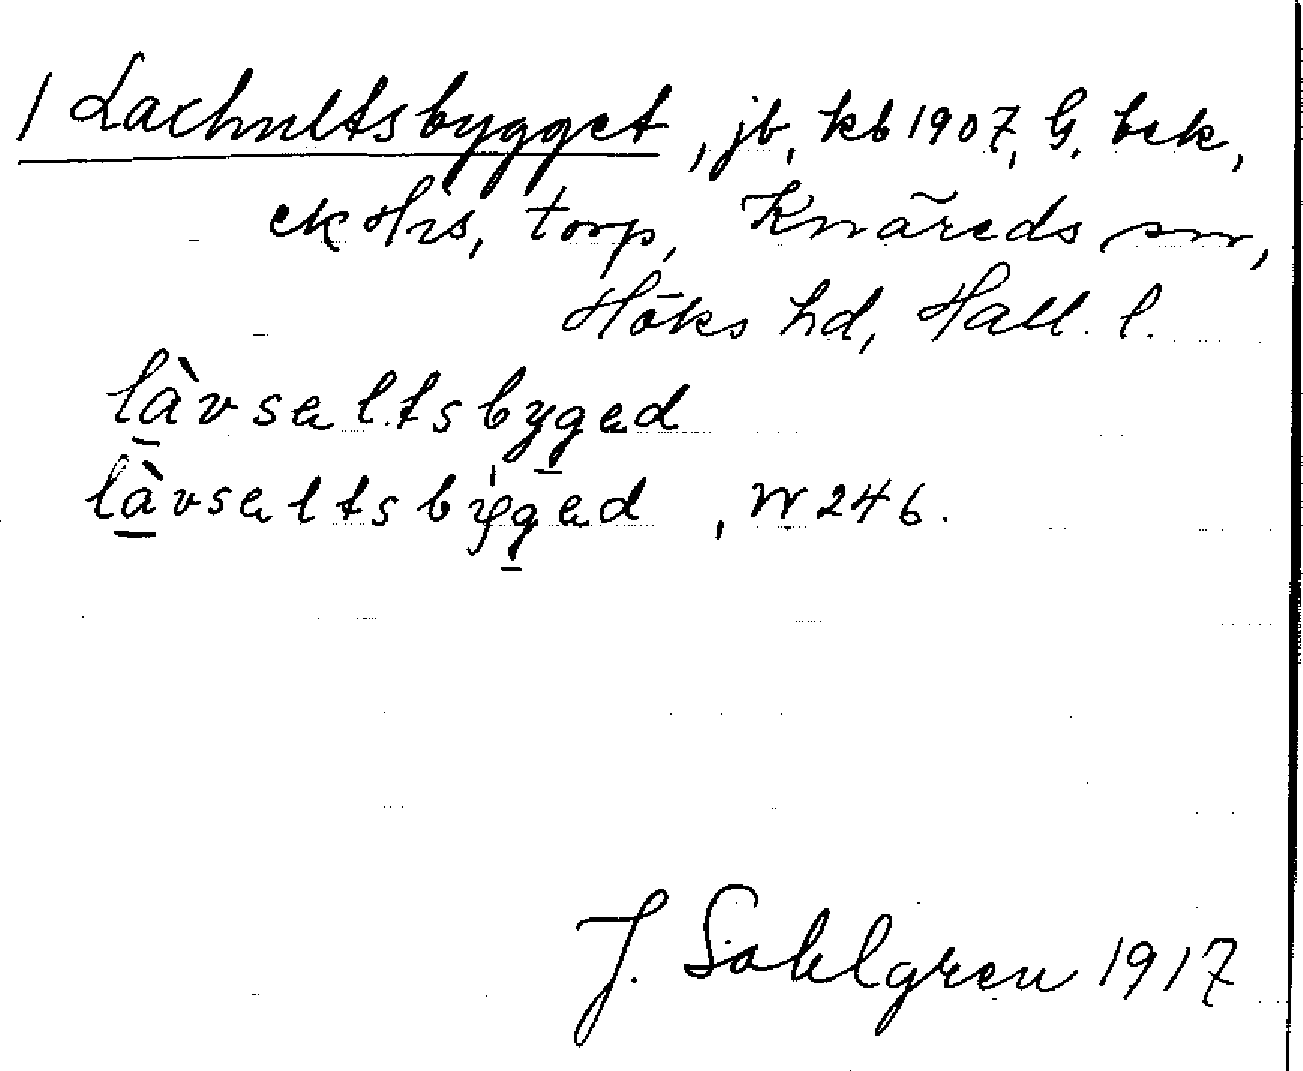 / Laxhultsbygget, jb, kb 1907, G. bek,
ek Hrs, torp, Knäreds sn,
Höks hd, Hall. l.
làvsaltsbygad
làvsaltsbygad, N 246.
J. Sahlgren 1917